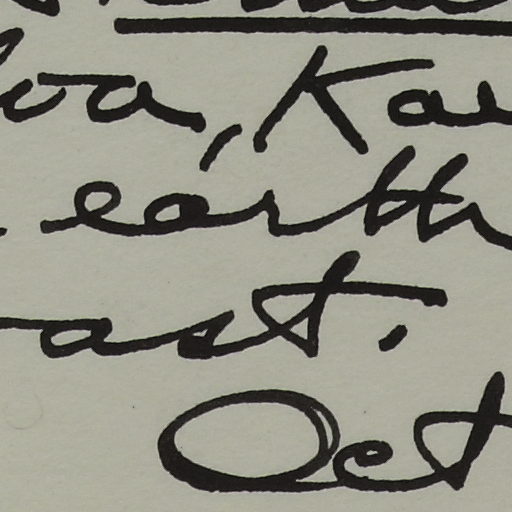 oa, Ka
earth
ast.
Oct